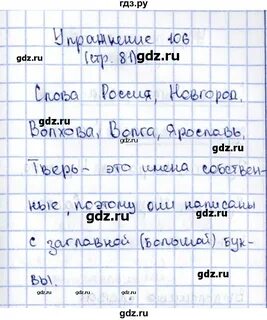 gdz.ru
Упражнение 106
(стр. 81)
Слова Россия, Новгород,
Волхова, Волга, Ярославль,
Тверь - это имена собствен-
ные, поэтому они написаны
с заглавной (большой) бук-
вы.